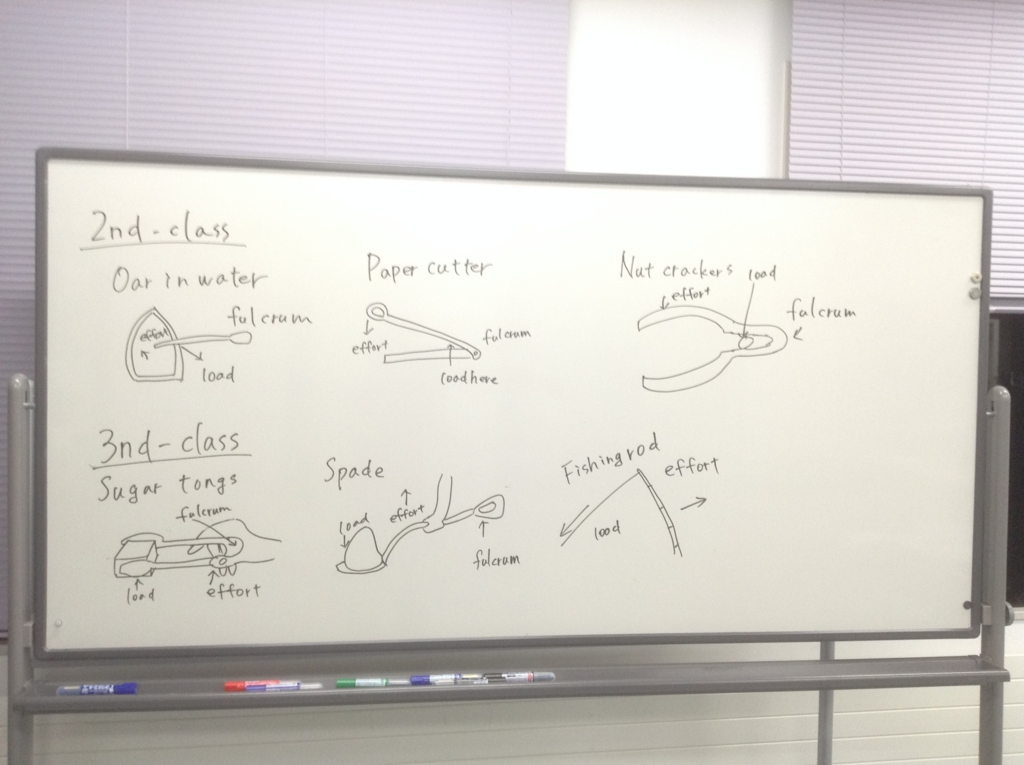 2nd-class
Oar in water
effort
fulcrum
load
Paper cutter
effort
fulcrum
load here
Nut crackers
effort
load
fulcrum
3nd-class
Sugar tongs
fulcrum
load
effort
Spade
load
effort
fulcrum
Fishing rod
load
effort